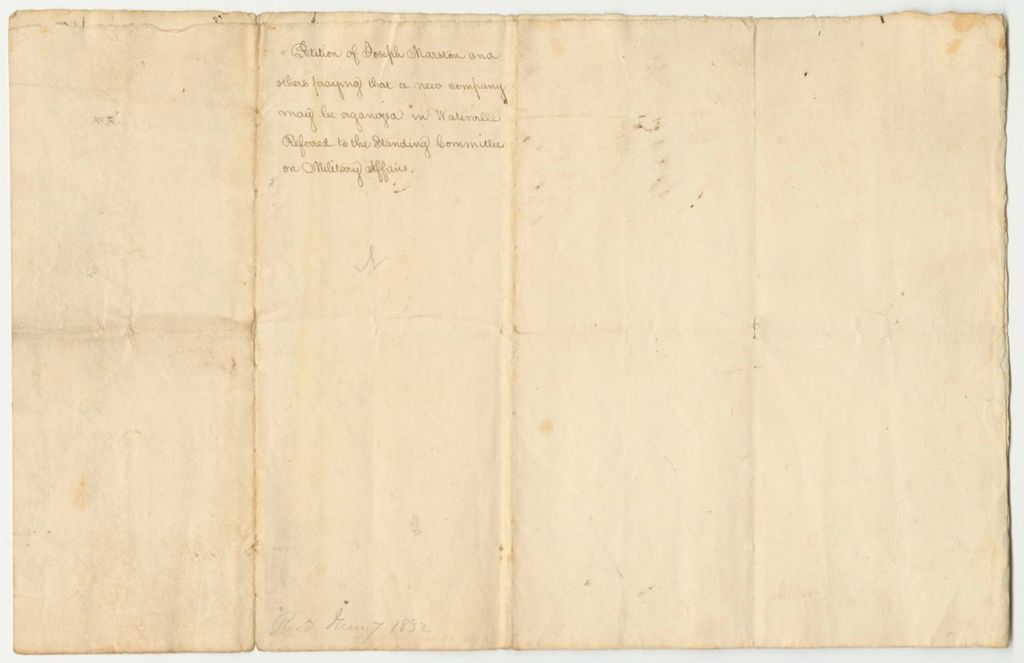 Petition of Joseph Marston and
others praying that a new company
may be organized in Waterville
Refored to the Standing Committee
on Military affairs.
N
Recd June 7 1832